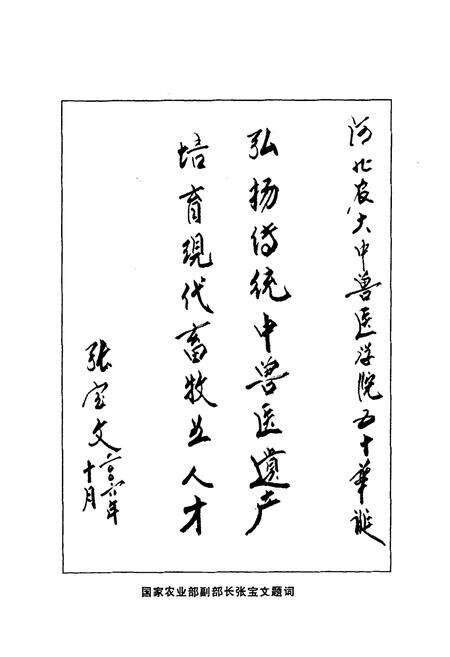 河北农大中兽医学院五十华诞
弘扬传统中兽医遗产
培育现代畜牧业人才
张宝文
二〇〇六年
十月
国家农业部副部长张宝文题词